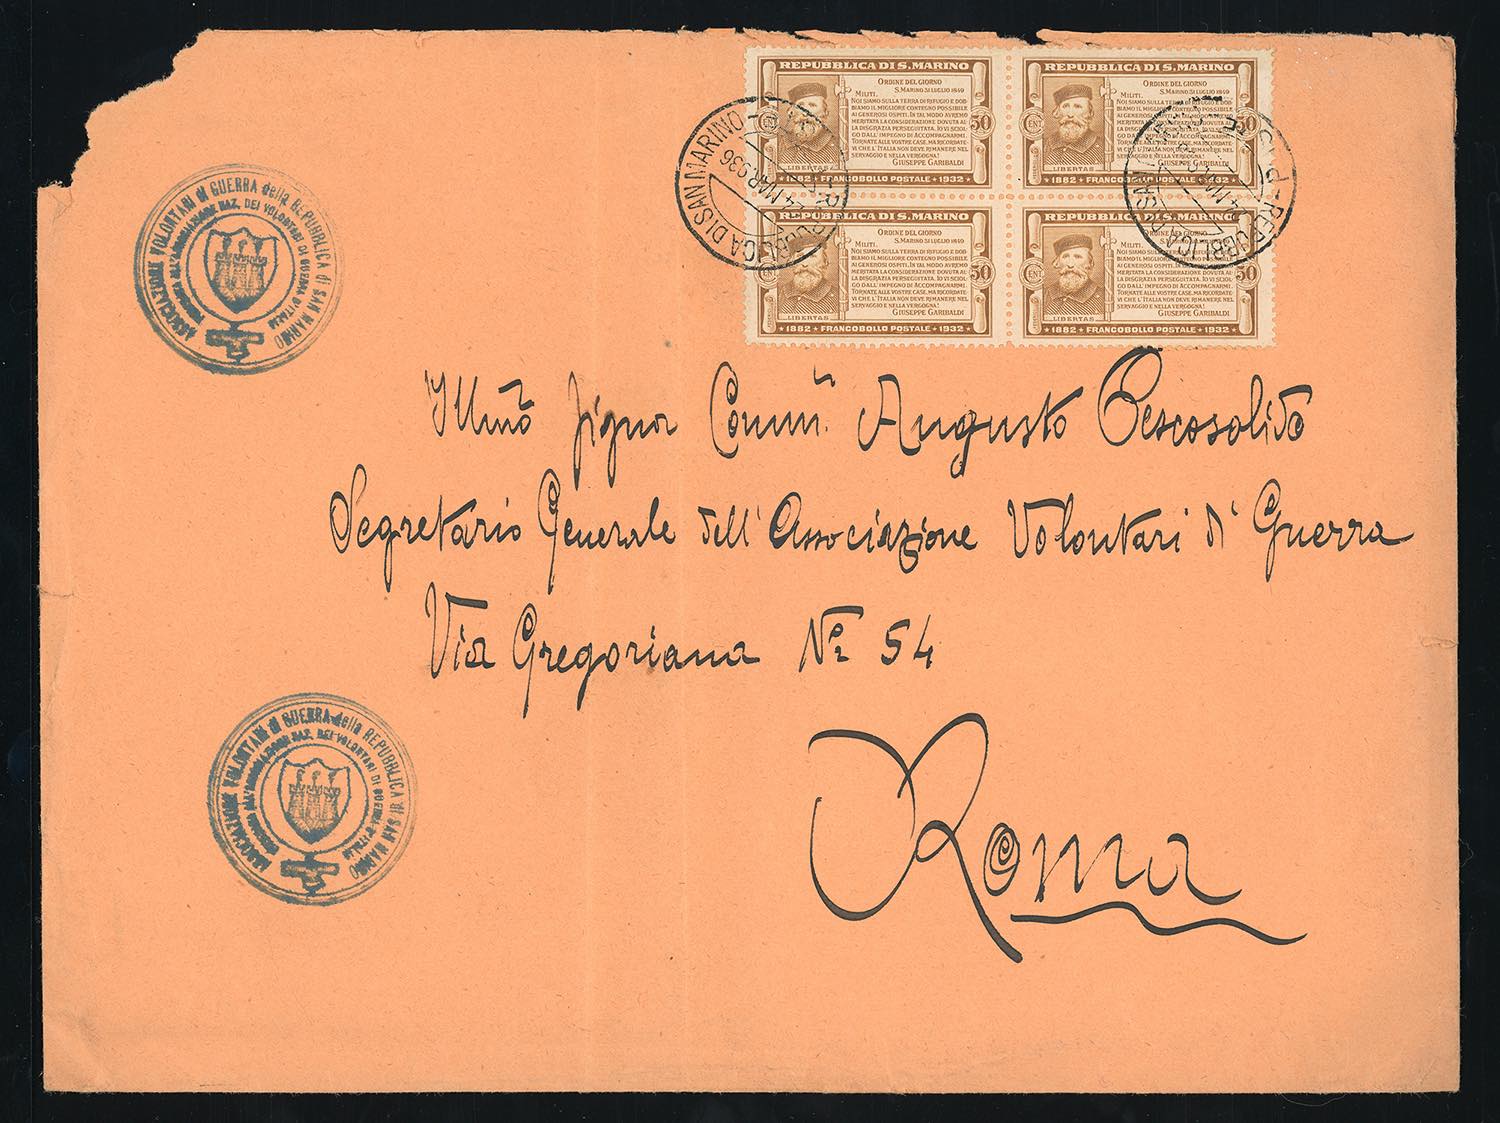 REPUBBLICA DI S. MARINO
ORDINE DEL GIORNO
S. MARINO 31 LUGLIO 1849
MILITI.
NOI SIAMO SULLA TERRA DI RIFUGIO E DOB-
BIAMO IL MIGLIORE CONTEGNO POSSIBILE
AI GENEROSI OSPITI. IN TAL MODO AVREMO
MERITATA LA CONSIDERAZIONE DOVUTA AL
LA DISGRAZIA PERSEGUITATA. IO VI SCIOL
GO DALL'IMPEGNO DI ACCOMPAGNARMI.
TORNATE ALLE VOSTRE CASE, MA RICORDATE
VI CHE L'ITALIA NON DEVE RIMANERE NEL
SERVAGGIO E NELLA VERGOGNA!
GIUSEPPE GARIBALDI
CENT
50
LIBERTAS
* 1882 * FRANCOBOLLO POSTALE * 1932 *
REPUBBLICA DI S. MARINO
ORDINE DEL GIORNO
S. MARINO 31 LUGLIO 1849
MILITI.
NOI SIAMO SULLA TERRA DI RIFUGIO E DOB-
BIAMO IL MIGLIORE CONTEGNO POSSIBILE
AI GENEROSI OSPITI. IN TAL MODO AVREMO
MERITATA LA CONSIDERAZIONE DOVUTA AL
LA DISGRAZIA PERSEGUITATA. IO VI SCIOL
GO DALL'IMPEGNO DI ACCOMPAGNARMI.
TORNATE ALLE VOSTRE CASE, MA RICORDATE
VI CHE L'ITALIA NON DEVE RIMANERE NEL
SERVAGGIO E NELLA VERGOGNA!
GIUSEPPE GARIBALDI
CENT
50
LIBERTAS
* 1882 * FRANCOBOLLO POSTALE * 1932 *
REPUBBLICA DI S. MARINO
ORDINE DEL GIORNO
S. MARINO 31 LUGLIO 1849
MILITI.
NOI SIAMO SULLA TERRA DI RIFUGIO E DOB-
BIAMO IL MIGLIORE CONTEGNO POSSIBILE
AI GENEROSI OSPITI. IN TAL MODO AVREMO
MERITATA LA CONSIDERAZIONE DOVUTA AL
LA DISGRAZIA PERSEGUITATA. IO VI SCIOL
GO DALL'IMPEGNO DI ACCOMPAGNARMI.
TORNATE ALLE VOSTRE CASE, MA RICORDATE
VI CHE L'ITALIA NON DEVE RIMANERE NEL
SERVAGGIO E NELLA VERGOGNA!
GIUSEPPE GARIBALDI
CENT
50
LIBERTAS
* 1882 * FRANCOBOLLO POSTALE * 1932 *
REPUBBLICA DI S. MARINO
ORDINE DEL GIORNO
S. MARINO 31 LUGLIO 1849
MILITI.
NOI SIAMO SULLA TERRA DI RIFUGIO E DOB-
BIAMO IL MIGLIORE CONTEGNO POSSIBILE
AI GENEROSI OSPITI. IN TAL MODO AVREMO
MERITATA LA CONSIDERAZIONE DOVUTA AL
LA DISGRAZIA PERSEGUITATA. IO VI SCIOL
GO DALL'IMPEGNO DI ACCOMPAGNARMI.
TORNATE ALLE VOSTRE CASE, MA RICORDATE
VI CHE L'ITALIA NON DEVE RIMANERE NEL
SERVAGGIO E NELLA VERGOGNA!
GIUSEPPE GARIBALDI
CENT
50
LIBERTAS
* 1882 * FRANCOBOLLO POSTALE * 1932 *
REPUBBLICA DI SAN MARINO
24 MAR 936
ASSOCIAZIONE VOLONTARI di GUERRA della REPUBBLICA di SAN MARINO
ALL'ASSOCIAZIONE NAZ. DEI VOLONTARI DI GUERRA D'ITALIA
Illmo Signor Comm. Augusto Pescosolido
Segretario Generale dell'Associazione Volontari di Guerra
Via Gregoriana No 54
Roma
ASSOCIAZIONE VOLONTARI di GUERRA della REPUBBLICA di SAN MARINO
ALL'ASSOCIAZIONE NAZ. DEI VOLONTARI DI GUERRA D'ITALIA